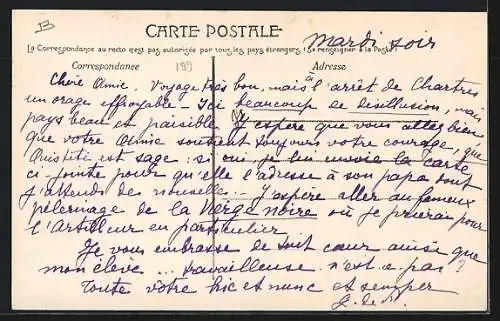 B
CARTE POSTALE
La Correspondance au recto n'est pas autorisée par tous les pays étrangers (Se renseigner à la Poste)
Mardi soir
Correspondance
Adresse
199
Chère Amie. Voyage très bon, mais à l'arrêt de Chartres
un orage effroyable - Ici beaucoup de désillusion, mais
pays beau et paisible J'espère que vous allez bien
que votre Amie soutient toujours votre courage, que
Ouistiti est sage : si oui, je lui envoie la carte
ci-jointe pour qu'elle l'adresse à son papa dont
j'attends de nouvelle... J'espère aller au fameux
pèlerinage de la Vierge noire où je prierai pour
l'Artilleur en particulier
Je vous embrasse de tout cœur ainsi que
mon élève ... travailleuse n'est-ce pas ?
Toute votre hic et nunc et semper
G. de